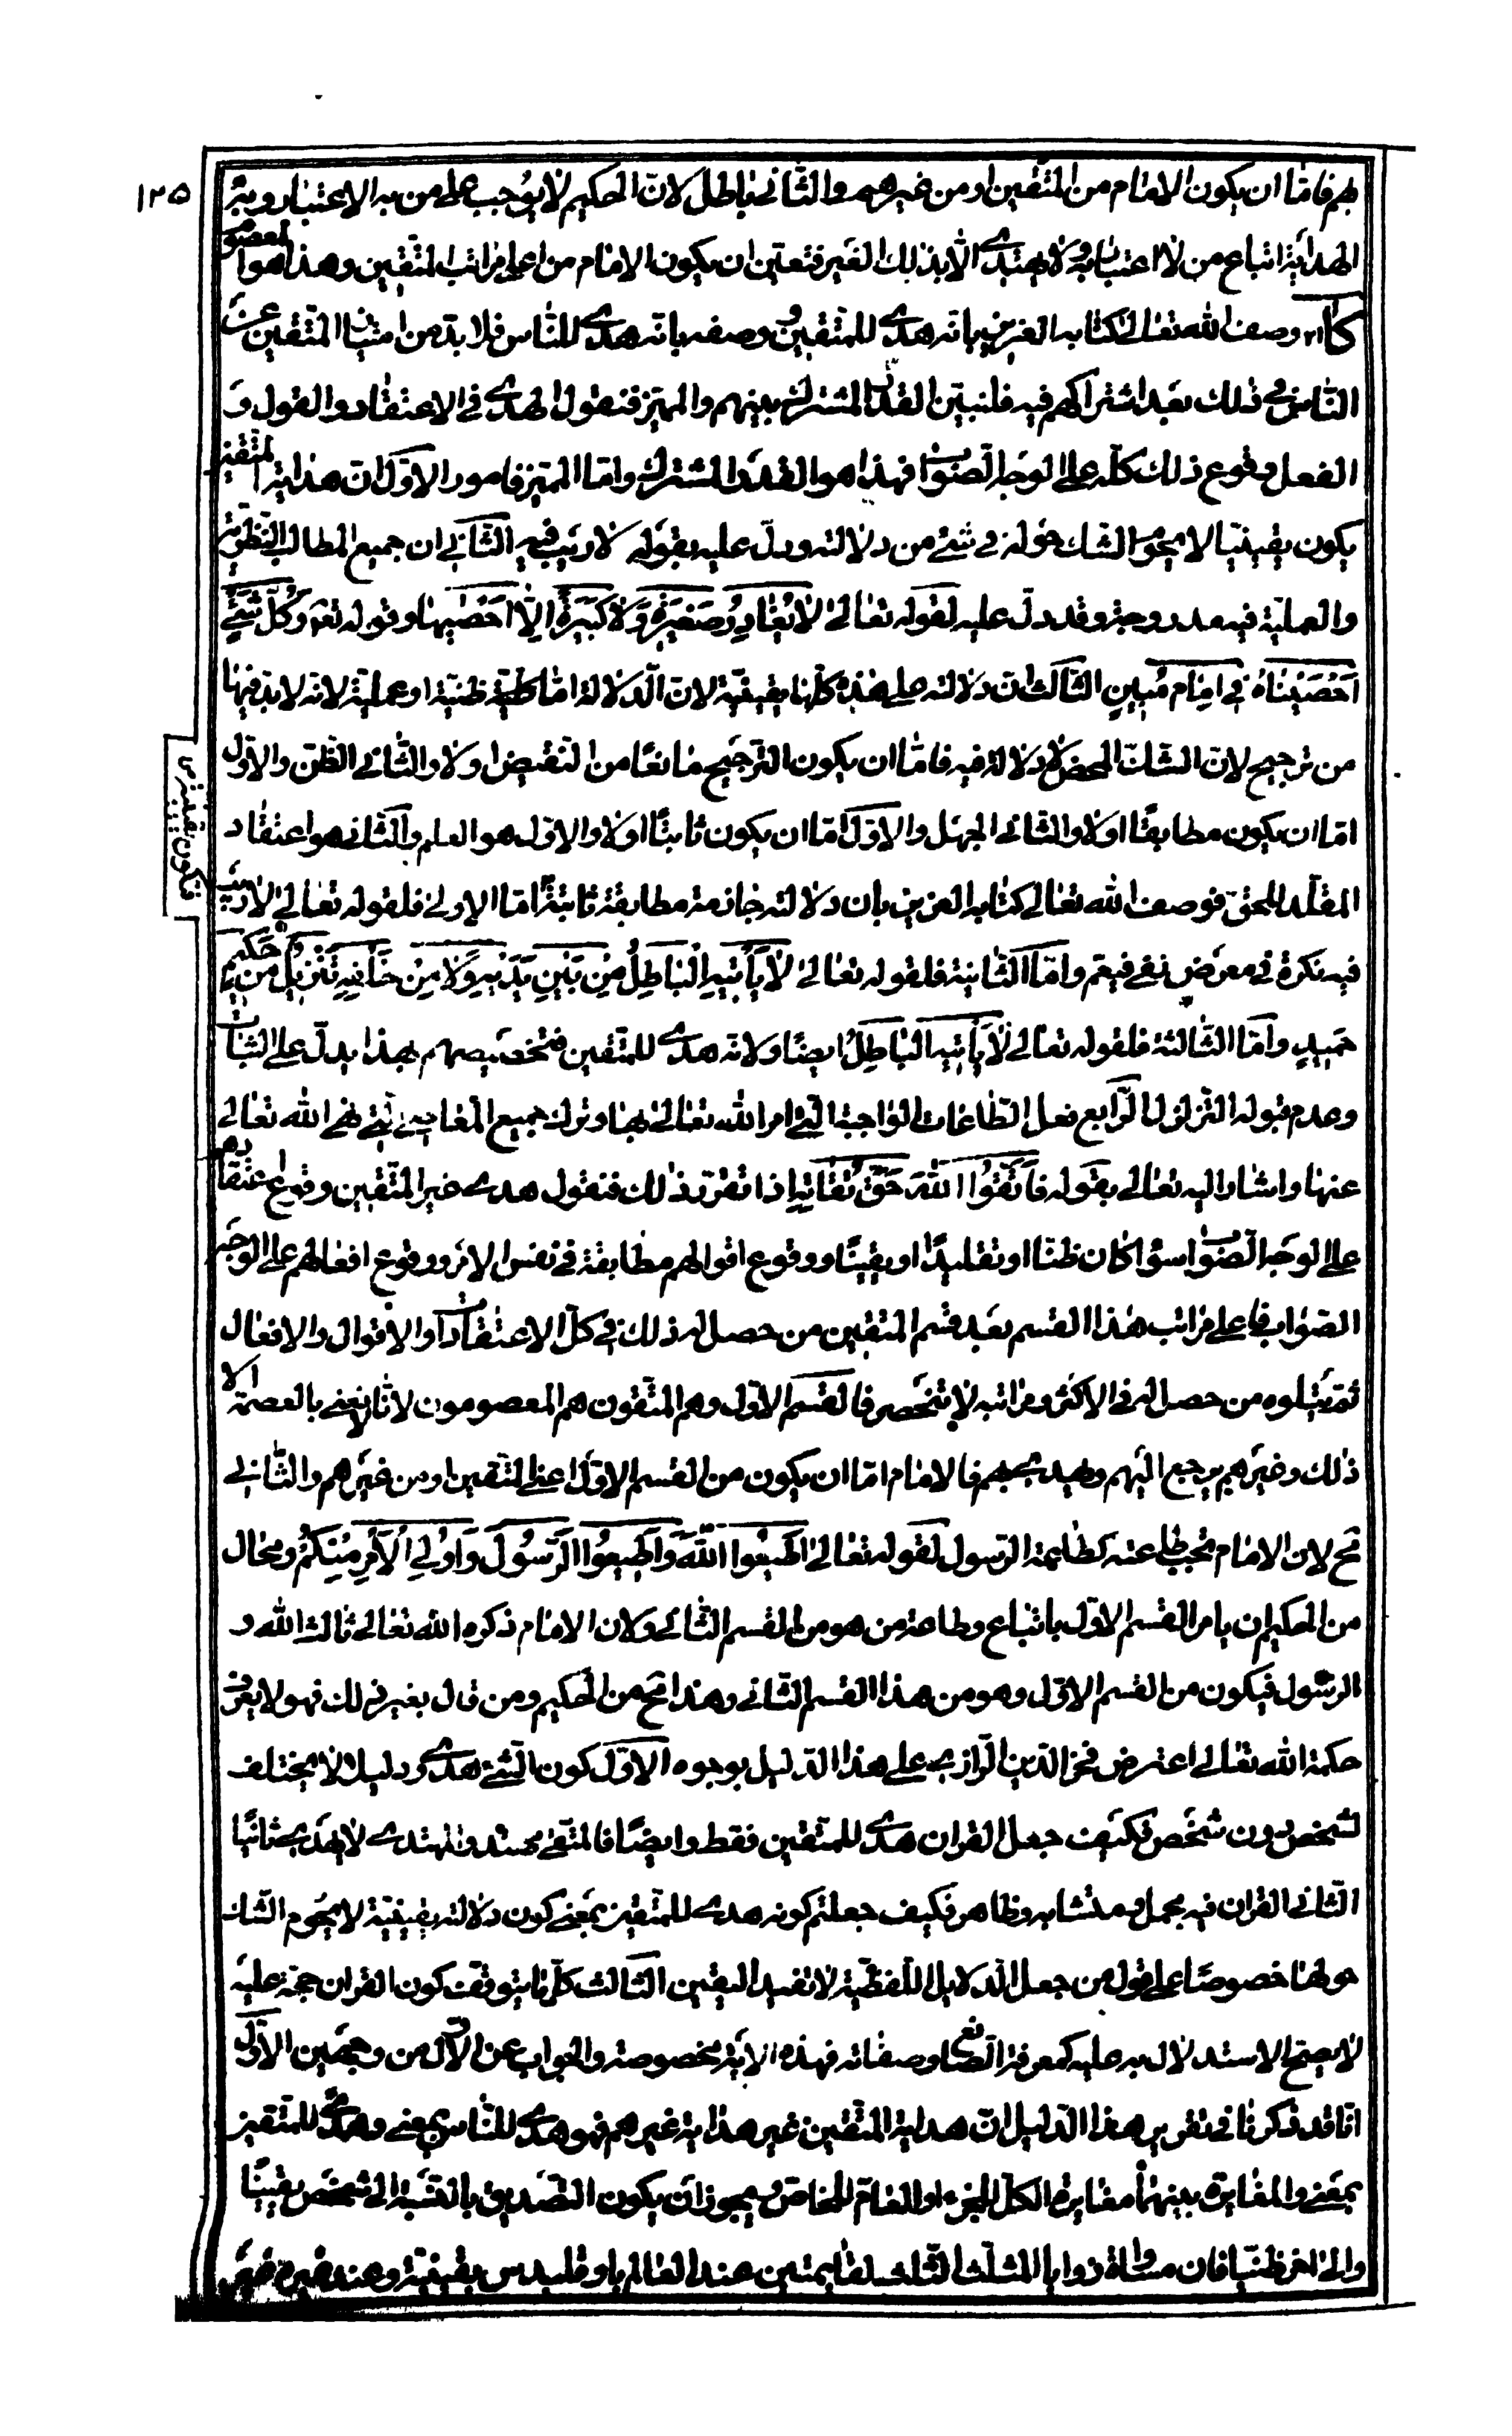 ١٢٥
بهم فاما ان يكون الامام من المتّقين او من غيرهم والثّانى باطل لانّ الحكيم لا يوجب على من به الاعتبار وبه
الهداية اتباع من لا اعتبار به ولا يهتدى الّا بذلك الغير فتعيّن ان يكون الامام من اعلى مراتب المتّقين وهذا هو المعصو
كا وصف الله تعالى كتابه العزيز بانه هدى للمتّقين ووصفه بانه هدى للنّاس فلا بدّ من امتياز المتّقين عن
النّاس فى ذلك بعد اشتراكهم فيه فلنبيّن القدر المشترك بينهم والمميّز فنقول الهدى فى الاعتقاد والقول و
الفعل وقوع ذلك كلّه على الوجه الصّواب فهذا هو القدر المشترك وامّا المميّز فامور الاوّل انّ هداية المتّقين
يكون يقينيّا لا يحوم الشك حوله فى شئ من دلالته ودلّ عليه بقوله لا ريب فيه الثّانى ان جميع المطالب النّظريّة
والعمليّة فيه مدروجة وقد دلّ عليه لقوله تعالى لا يُغادِرُ صَغيرَةً وَلا كَبيرَةً اِلّا اَحْصٰيها وقوله تعم وَكُلَّ شَىْءٍ
اَحْصَيْناهُ فى اِمامٍ مُبينٍ الثّالث ان دلالته على هذه كلّها يقينيّة لانّ الدّلالة امّا ظنية او عملية لانه لا بدّ فيها
من ترجيح لانّ الشّك المحض لا دلالة فيه فامّا ان يكون الترجيح مانعًا من النّقيض اولا والثّانى الظّن والاوّل
امّا ان يكون مطابقًا اولا والثّانى الجهل والاوّل امّا ان يكون ثابتًا اولا والاوّل هو العلم والثّانى هو اعتقاد
المقلّد للمحقّ فوصف الله تعالى كتابه العزيز بان دلالته جازمة مطابقة ثابتة امّا الاولى فلقوله تعالى لا ريب
فيه نكرة فى معرض نفى فيعم وامّا الثّانية فلقوله تعالى لا يَأْتيهِ الْباطِلُ مِنْ بَيْنِ يَدَيْهِ وَلا مِنْ خَلْفِهِ تَنْزيلٌ مِنْ حَكيمٍ
حَميدٍ وامّا الثّالثة فلقوله تعالى لا يَأْتيهِ الباطِلُ ايضًا ولانه هدى للمتّقين فتخصيصهم بهذا يدلّ على الثبات
وعدم قبوله التزلزل الرّابع فعل الطّاعات الواجبة الّتى امر الله تعالى بها وترك جميع المعاصى الّتى نهى الله تعالى
عنها واشار اليه تعالى بقوله فَاتَّقُوا اللهَ حَقَّ تُقاتِهِ اذا تقرّر ذلك فنقول هدى غير المتّقين وقوع اعتقادهم
على الوجه الصّواب سواء كان ظنّا او تقليدًا او يقينًا ووقوع اقوالهم مطابقة فى نفس الامر ووقوع افعالهم على الوجه
الصّواب فاعلى مراتب هذا القسم بعد قسم المتقين من حصل له ذلك فى كلّ الاعتقادات والاقوال والافعال
ثمّ يتلوه من حصل له فى الاكثر ومراتبه لا تنحصر فالقسم الاوّل وهم المتّقون هم المعصومون لانّا لا نعنى بالعصمة الا
ذلك وغيرهم يرجع اليهم ويهتدى بهم فالامام امّا ان يكون من القسم الاوّل اعنى المتّقين او من غيرهم والثّانى
مح لان الامام يجب طاعته كطاعة الرّسول لقوله تعالى اَطيعُوا اللهَ وَاَطيعُوا الرَّسُولَ وَاُولِى الْاَمْرِ مِنْكُمْ ومحال
من الحكيم ان يامر القسم الاوّل باتباع وطاعة من هو من القسم الثّانى ولان الامام ذكره الله تعالى ثالث الله و
الرسول فيكون من القسم الاوّل وهو من هذا القسم الثّانى وهذا مح من الحكيم ومن قال بغير ذلك فهو لا يعرف
حكمة الله تعالى اعترض فخر الدّين الرّازى على هذا الدّليل بوجوه الاوّل كون الشّئ هدى ودليلا لا يختلف
لشخص دون شخص فكيف جعل القران هدى للمتّقين فقط وايضًا فالمتّقى مهتد والمهتدى لا يهتدى ثانيًا
الثّانى القران فيه مجمل ومتشابه وظاهر فكيف جعلتم كونه هدى للمتّقين بمعنى كون دلالته يقينيّة لا يحوم الشّك
حولها خصوصًا على قول من جعل الدّلايل اللّفظيّة لا تفيد اليقين الثالث كلّ ما يتوقف كون القران حجة عليه
لا يصحّ الاستدلال به عليه كمعرفة الصّانع وصفاته فهذه الاية مخصوصة والجواب عن الاوّل من وجهين الاوّل
انّا قد ذكرنا فى تقرير هذا الدّليل انّ هداية المتّقين غير هداية غيرهم فهو هدى للنّاس بمعنى وهدى للمتّقين
بمعنى والمغايرة بينهما مغايرة الكلّ للجزء او العامّ للخاصّ ويجوز ان يكون التّصديق بالنّسبة الى شخص يقينيًا
والى اخر ظنيّا فان مساواة زوايا المثلّث الثّلث لقائمتين عند العالم باوقليدس يقينية وعند غيره